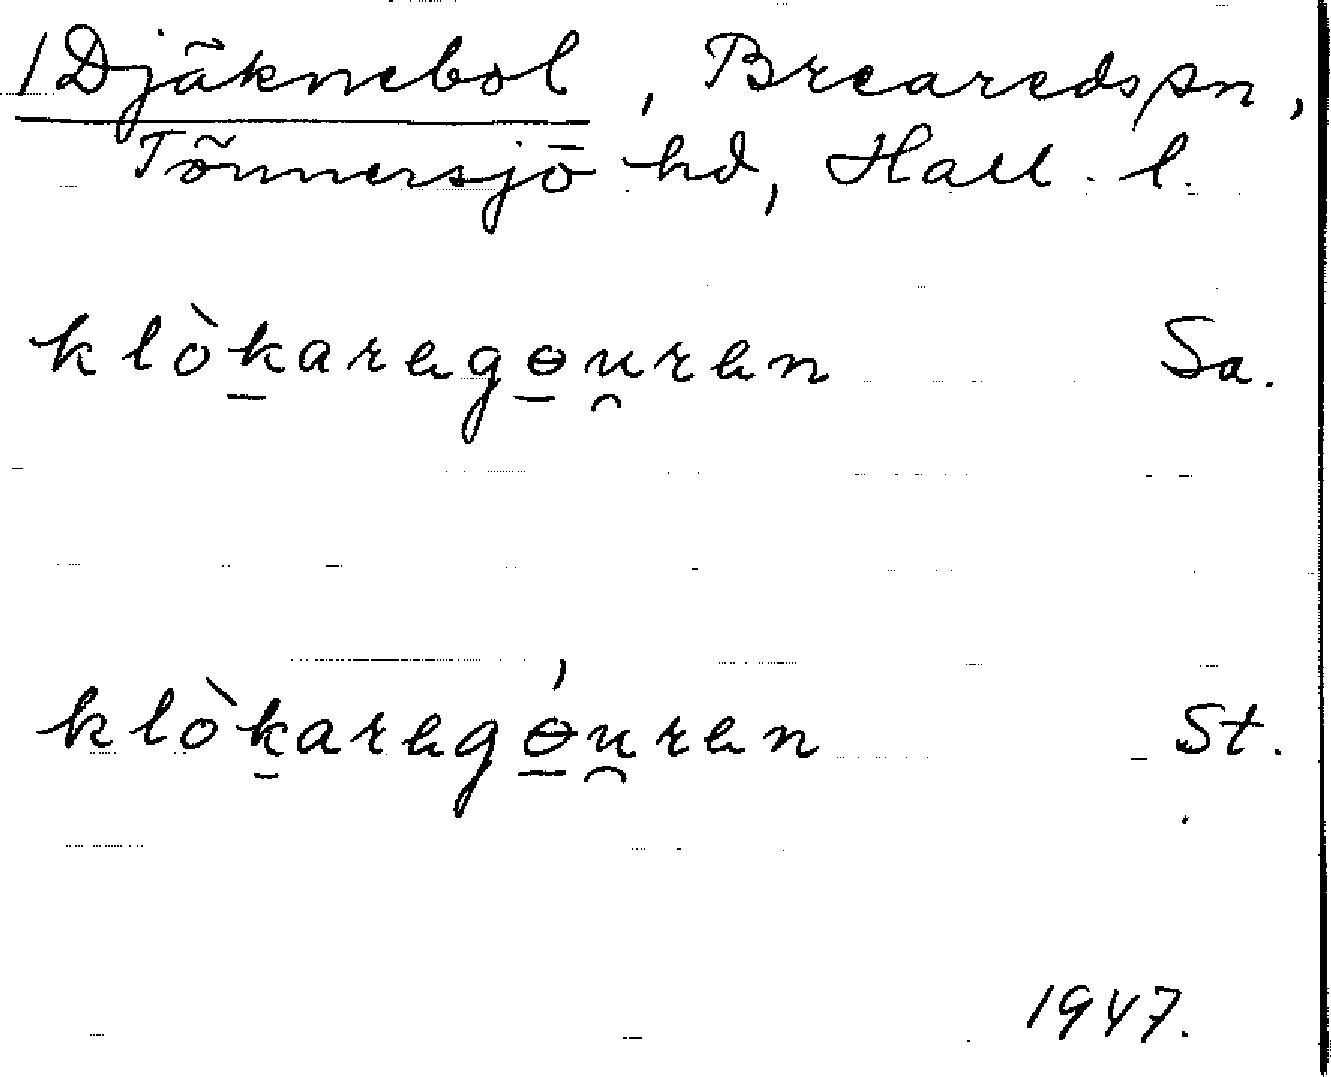 /Djäknebol, Breareds sn,
Tönnersjö hd, Hall. l.
klòkaragɵu̯rɘn Sa.
klòkaragɵ́u̯rɘn St.
1947.